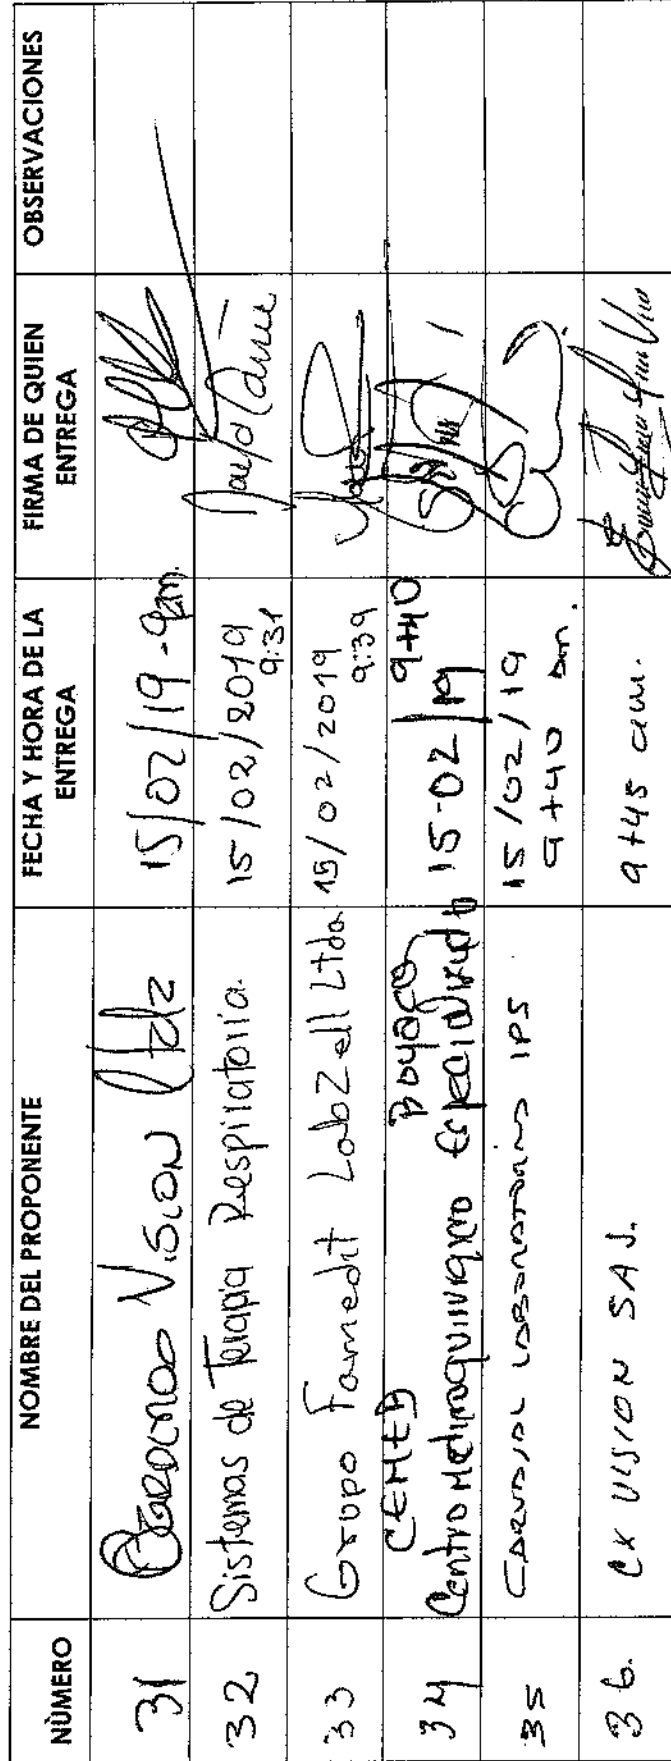 NÙMERO NOMBRE DEL PROPONENTE FECHA Y HORA DE LA ENTREGA FIRMA DE QUIEN ENTREGA OBSERVACIONES
31 Vision Ltda 15/02/19 - 9am.
32 Sistemas de Terapia Respiratoria. 15/02/2019 9:31 David
33 Grupo Famedit LabZell Ltda. 15/02/2019 9:39
34 CEMEB Boyacá
Centro Medicoquirurgico Especializado 15-02/19 9+40
35 CARVAJAL LABORATORIOS IPS 15/02/19
9+40 am.
36. CK VISION SAS. 9+45 am.